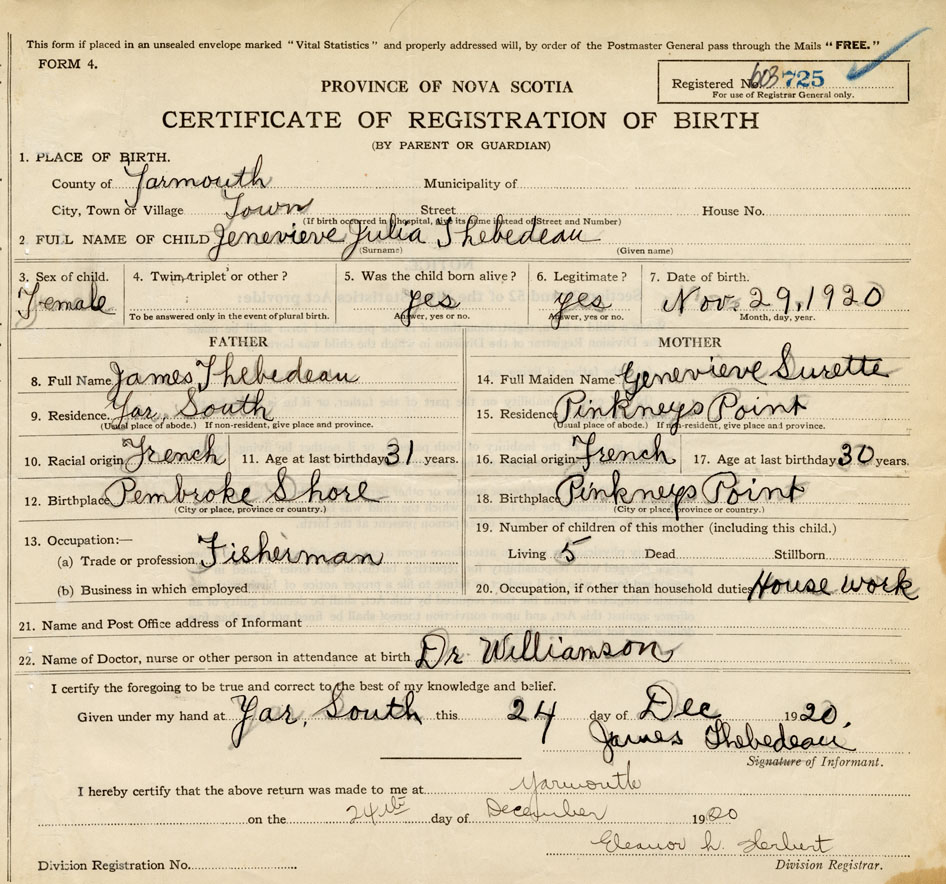 This form if placed in an unsealed envelope marked "Vital Statistics" and properly addressed will, by order of the Postmaster General pass through the Mails "FREE."
FORM 4.
Registered No. 603 725
For use of Registrar General only.
PROVINCE OF NOVA SCOTIA
CERTIFICATE OF REGISTRATION OF BIRTH
(BY PARENT OR GUARDIAN)
1. PLACE OF BIRTH.
County of Yarmouth Municipality of
City, Town or Village Town Street House No.
(If birth occurred in a hospital, give its name instead of Street and Number)
2 FULL NAME OF CHILD Jenevieve Julia Thebedeau
(Surname) (Given name)
3. Sex of child. 4. Twin, triplet or other? 5. Was the child born alive? 6. Legitimate? 7. Date of birth.
Female yes yes Nov. 29, 1920
To be answered only in the event of plural birth. Answer, yes or no. Answer, yes or no. Month, day, year.
FATHER MOTHER
8. Full Name James Thebedeau 14. Full Maiden Name Genevieve Surette
9. Residence. Yar, South 15. Residence Pinkneys Point
(Usual place of abode.) If non-resident, give place and province. (Usual place of abode.) If non-resident, give place and province.
10. Racial origin French 11. Age at last birthday 31 years. 16. Racial origin French 17. Age at last birthday 30 years.
12. Birthplace Pembroke Shore 18. Birthplace Pinkneys Point
(City or place, province or country.) (City or place, province or country.)
13. Occupation:— 19. Number of children of this mother (including this child.)
(a) Trade or profession Fisherman Living 5 Dead Stillborn
(b) Business in which employed 20. Occupation, if other than household duties House work
21. Name and Post Office address of Informant
22. Name of Doctor, nurse or other person in attendance at birth Dr Williamson
I certify the foregoing to be true and correct to the best of my knowledge and belief.
Given under my hand at Yar, South this 24 day of Dec 1920.
James Thebedeau
Signature of Informant.
I hereby certify that the above return was made to me at Yarmouth
on the 24th day of December 1920
Eleanor L. Herbert
Division Registration No. Division Registrar.